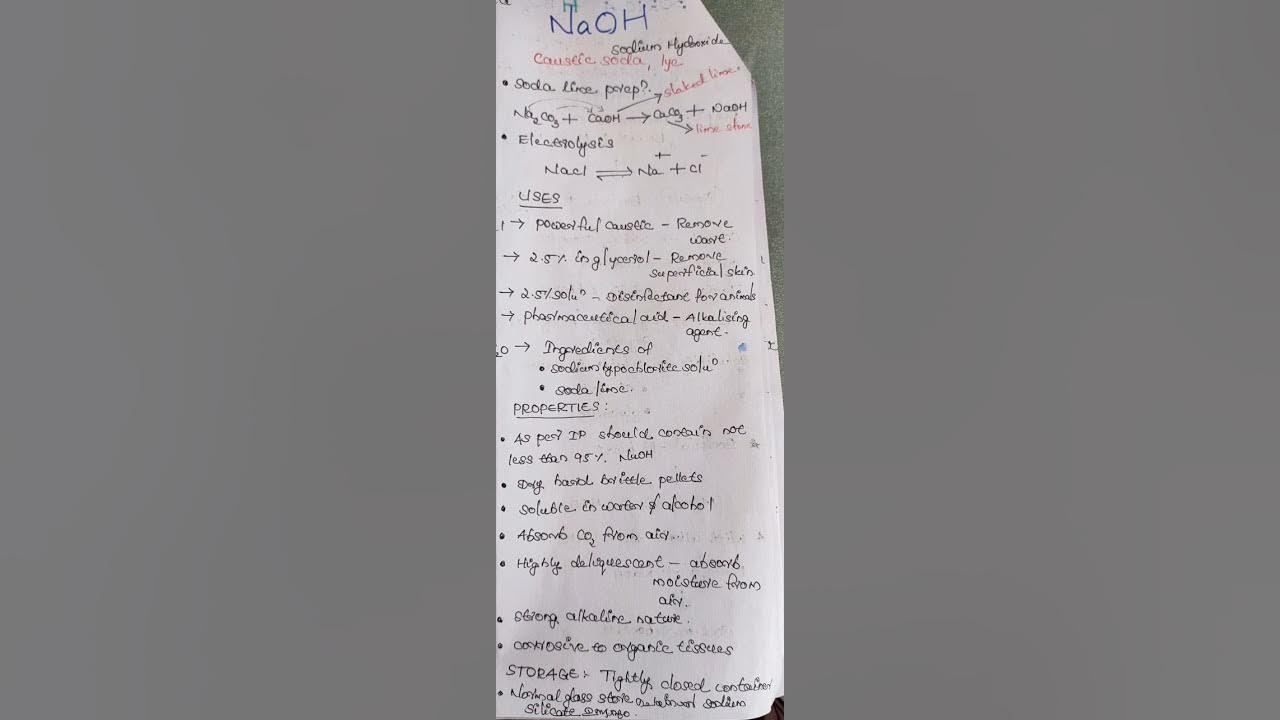 NaOH
Sodium Hydroxide
Caustic soda, lye
• Soda lime prep?. → slaked lime.
Na₂CO₃ + CaOH → CaCO₃ + NaOH
→ lime stone
• Electrolysis
NaCl ⇌ Na⁺ + Cl⁻
USES
→ Powerful caustic – Remove
wart.
→ 2.5% in glycerol – Remove
superficial skin
→ 2.5% soluⁿ – Disinfectant for animals
→ pharmaceutical aid – Alkalising
agent.
→ Ingredients of
• sodium hypochlorite soluⁿ
• soda lime.
PROPERTIES :
• As per IP should contain not
less than 95% NaOH
• Dry hard brittle pellets
• Soluble in water & alcohol
• Absorb CO₂ from air..
• Highly deliquescent – absorb
moisture from
air.
• Strong alkaline nature.
• corrosive to organic tissues
STORAGE :- Tightly closed container
• Normal glass store sodium
silicate